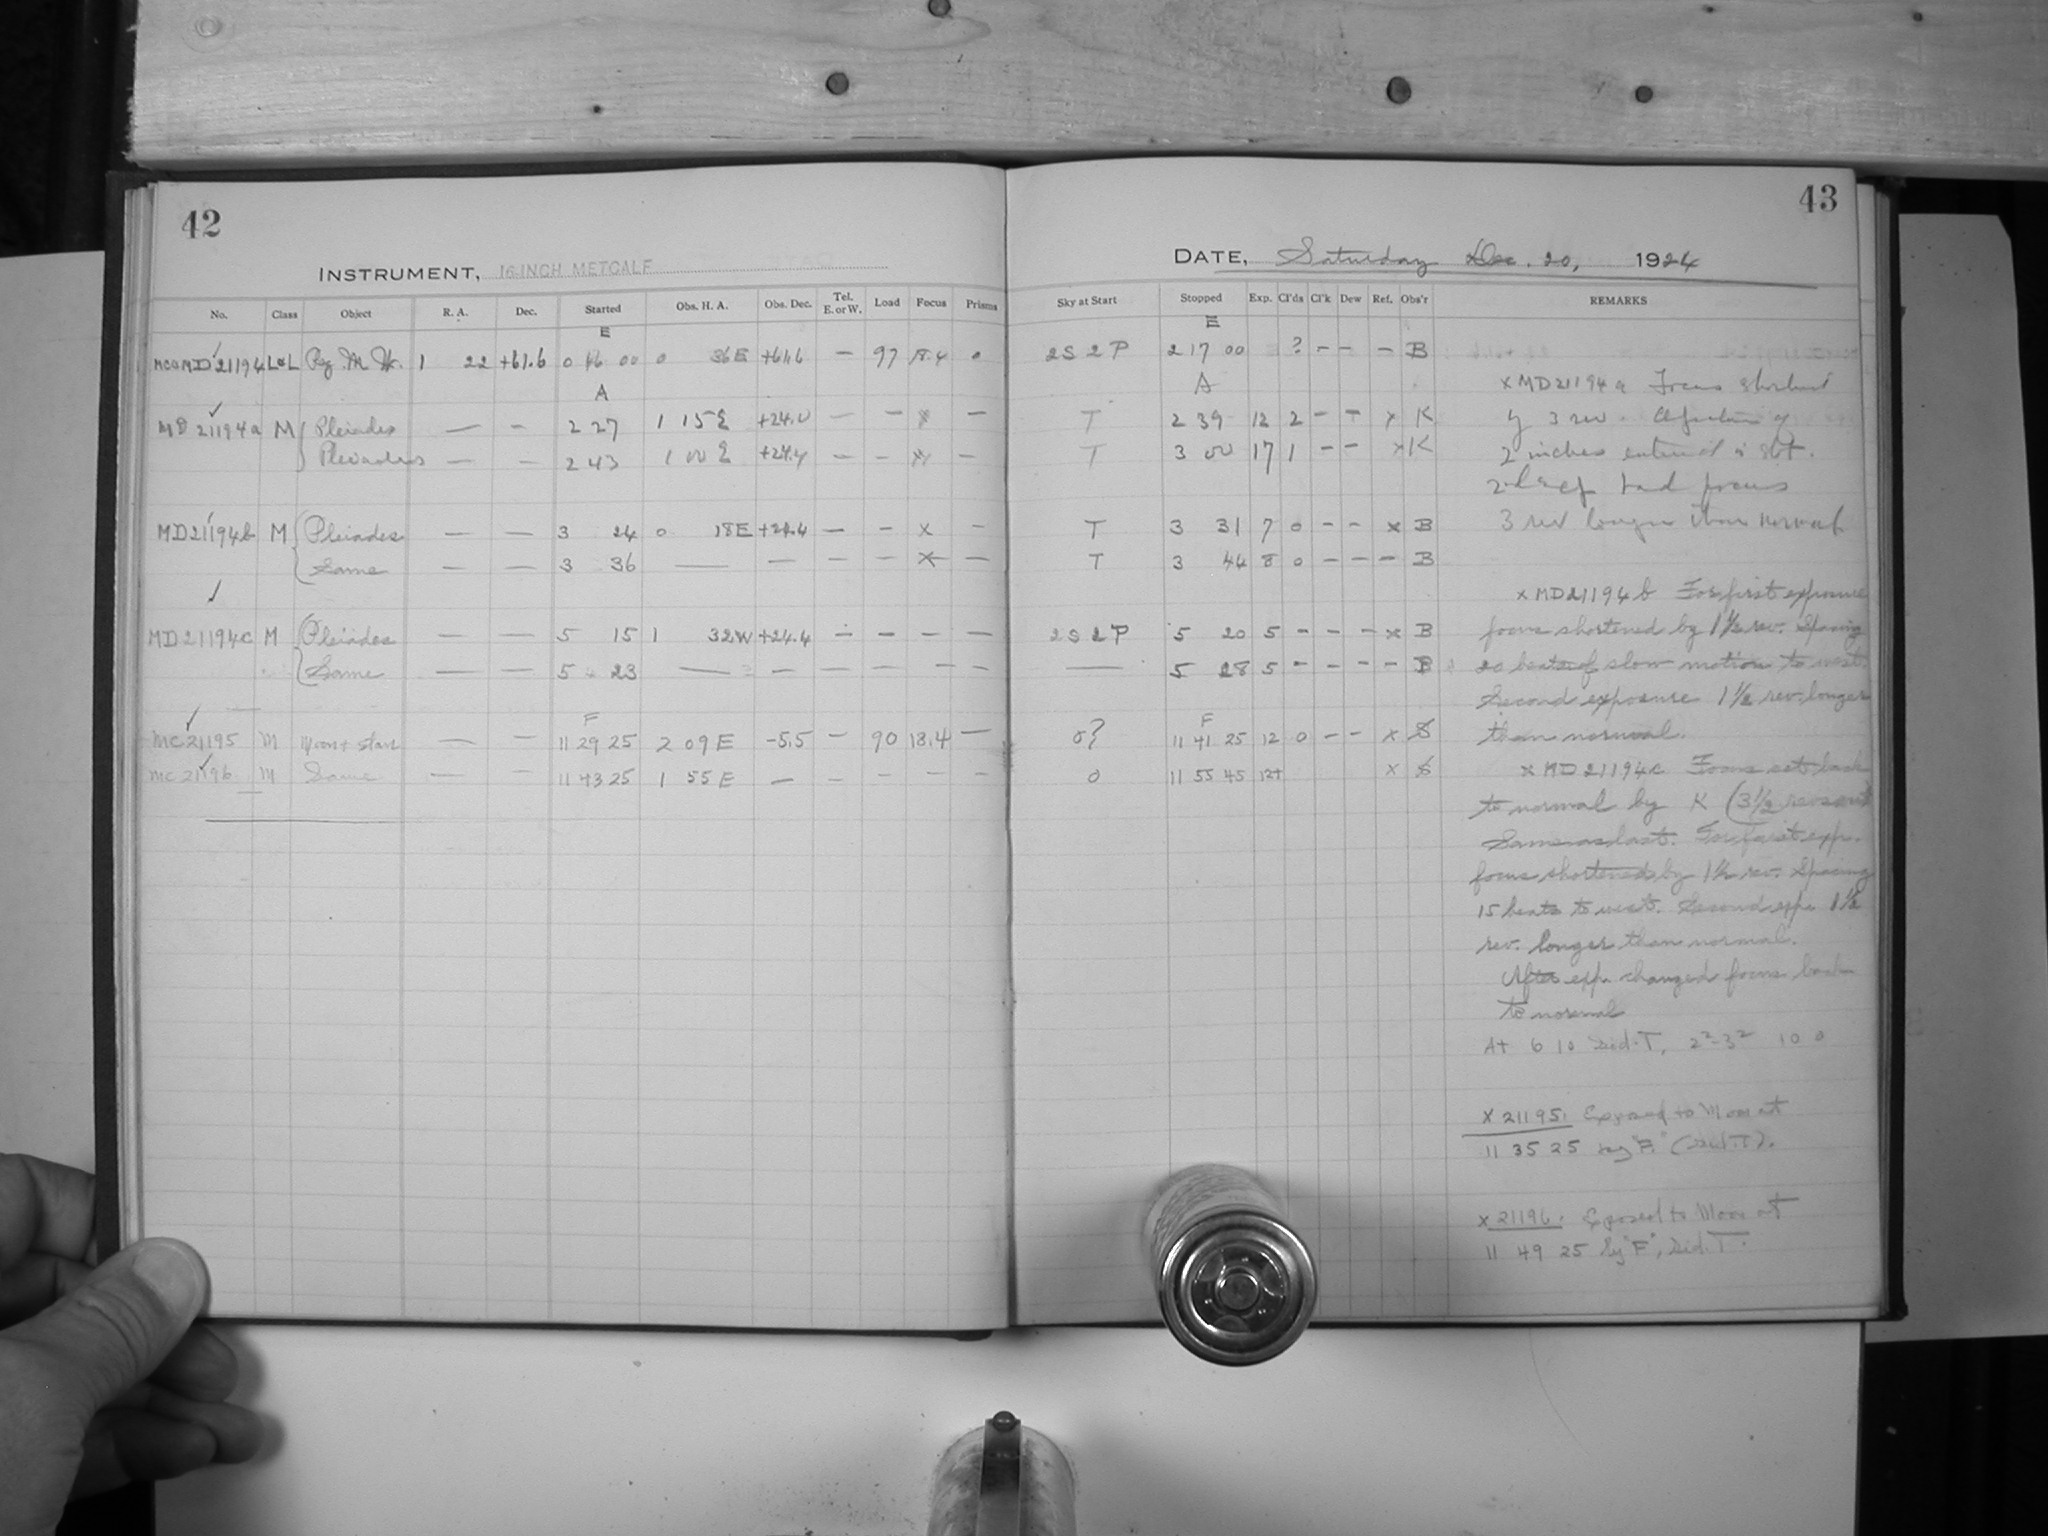 42
INSTRUMENT, 16-INCH METCALF
No. Class Object R. A. Dec. Started Obs. H. A. Obs. Dec. Tel. E. or W. Load Focus Prisms
E
MD 21194 L 1 22 +61.6 0 46 00 0 36E +61.6 — 97 18.4 0
A
MD 21194a M Pleiades — — 2 27 1 15 E +24.0 — — x —
Pleiades — — 2 43 1 00 E +24.4 — — x —
MD21194b M Pleiades — — 3 24 0 18E +24.4 — — x —
Same — — 3 36 — — — — x —
MD21194c M Pleiades — — 5 15 1 32W +24.4 — — — —
Same — — 5 23 — — — — — —
F
MC21195 M Moon + Stars — — 11 29 25 2 09 E -5.5 — 90 18.4 —
MC21196 M Same — — 11 43 25 1 55 E — — — — —
43
DATE, Saturday Dec. 20, 1924
Sky at Start Stopped Exp. Cl'ds Cl'k Dew Ref. Obs'r REMARKS
E
2S 2P 2 17 00 ? — — — B
A
T 2 39 12 2 — — x K
T 3 00 17 1 — — x K
T 3 31 7 0 — — x B
T 3 44 8 0 — — — B
2S 2P 5 20 5 — — — x B
— 5 28 5 — — — — B
F
0? 11 41 25 12 0 — — x S
0 11 55 45 12+ x S
x MD21194a Focus shortened
by 3 rev.
2 inches
2d had focus
3 rev longer than normal
x MD21194b For first exposure
focus shortened by 1½ rev. Spacing
20 beats of slow motion to west.
Second exposure 1½ rev. longer
than normal.
x MD21194c Focus set back
to normal by K (3½ revs out
Same as last. For first exp.
focus shortened by 1½ rev. Spacing
15 beats to west. Second exp. 1½
rev. longer than normal.
After exp. changed focus back
to normal
At 6 10 Sid. T, 2²-3² 10 0
x 21195. Exposed to Moon at
11 35 25 by "F." (Sid. T).
x 21196. Exposed to Moon at
11 49 25 by "F", Sid. T.